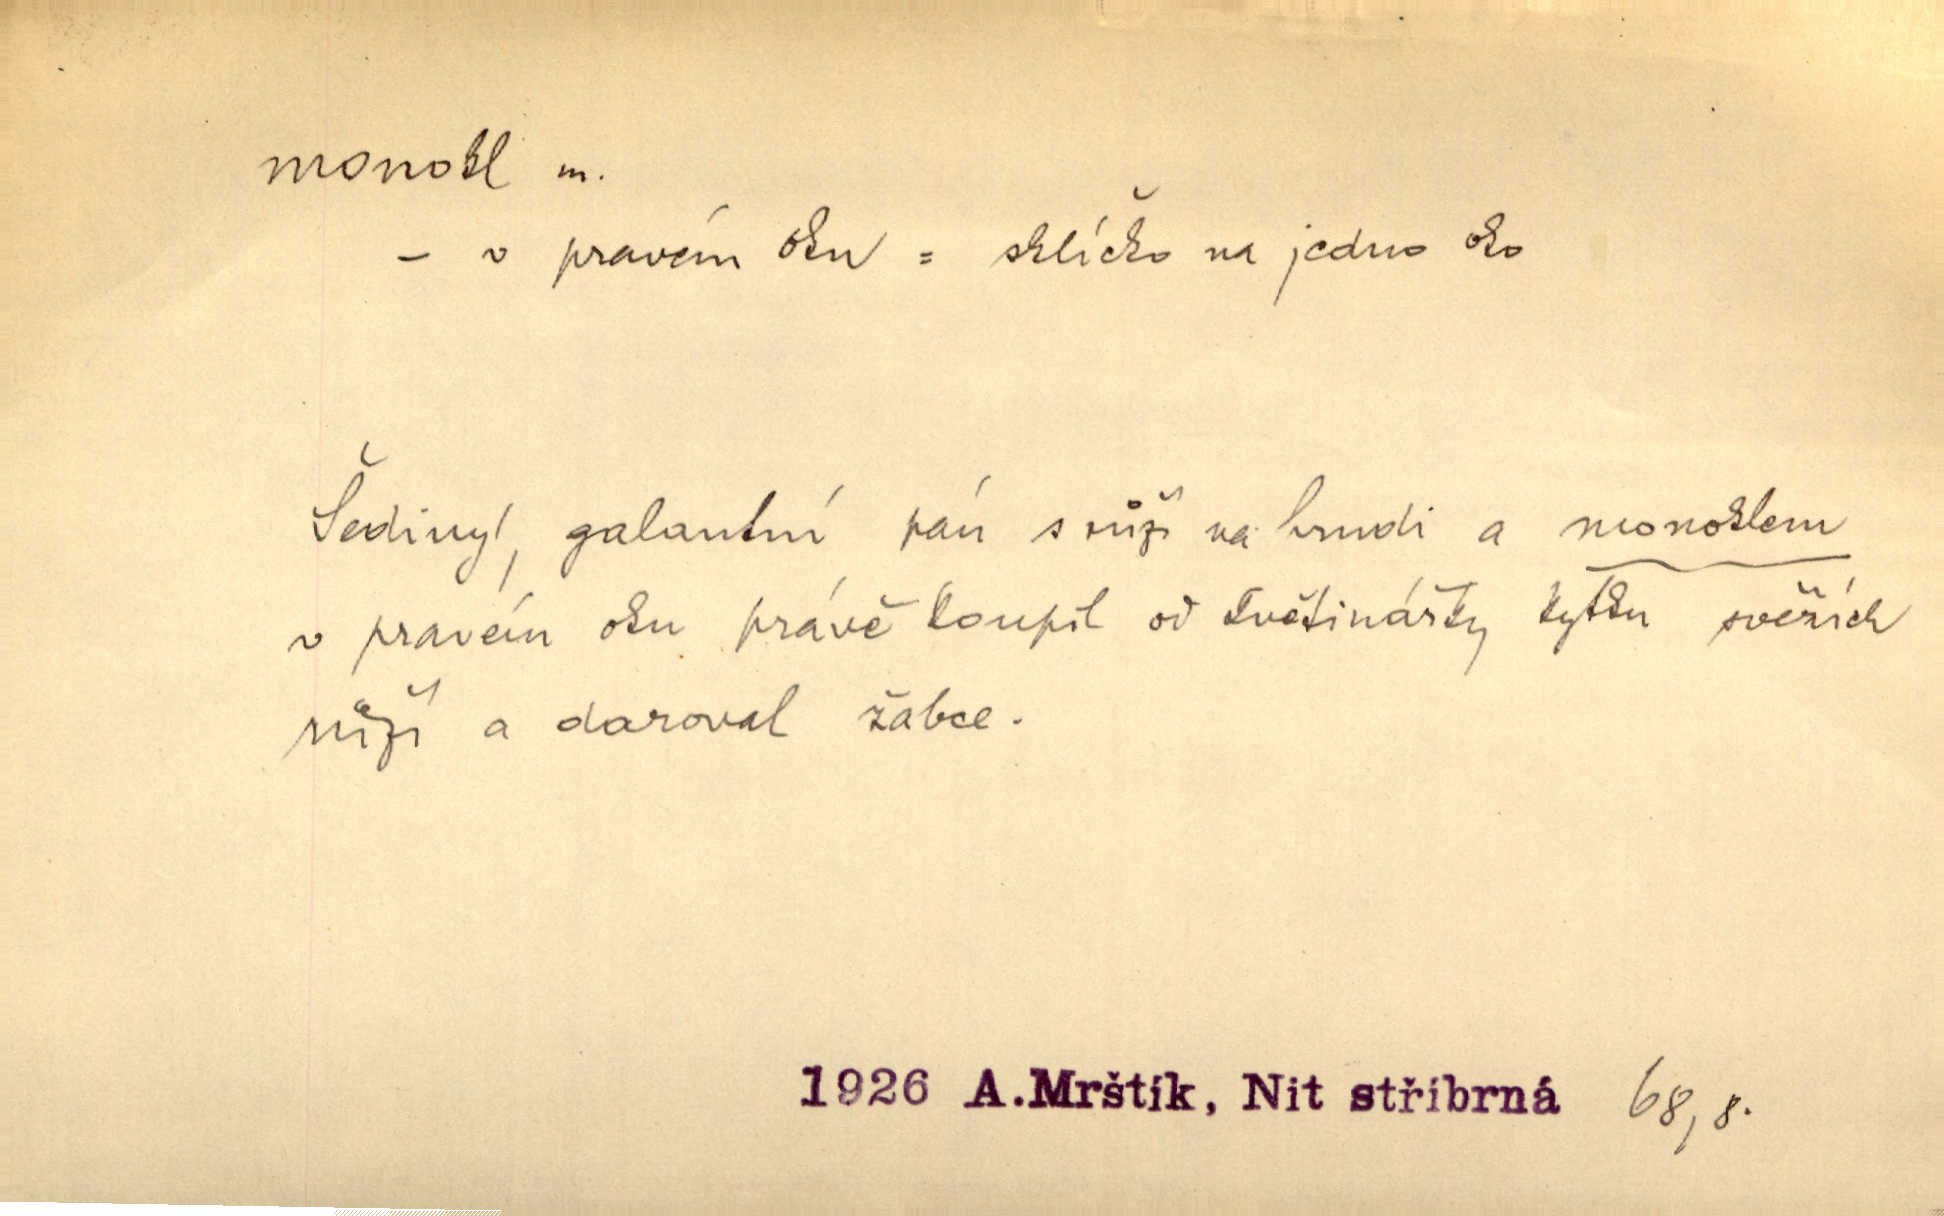 monokl m.
– v pravém oku = sklíčko na jedno oko
Šedivý, galantní pán s růží na hrudi a monoklem
v pravém oku právě koupil od květinářky kytku svěžích
růží a daroval žabce.
1926 A.Mrštík, Nit stříbrná 68, 8.